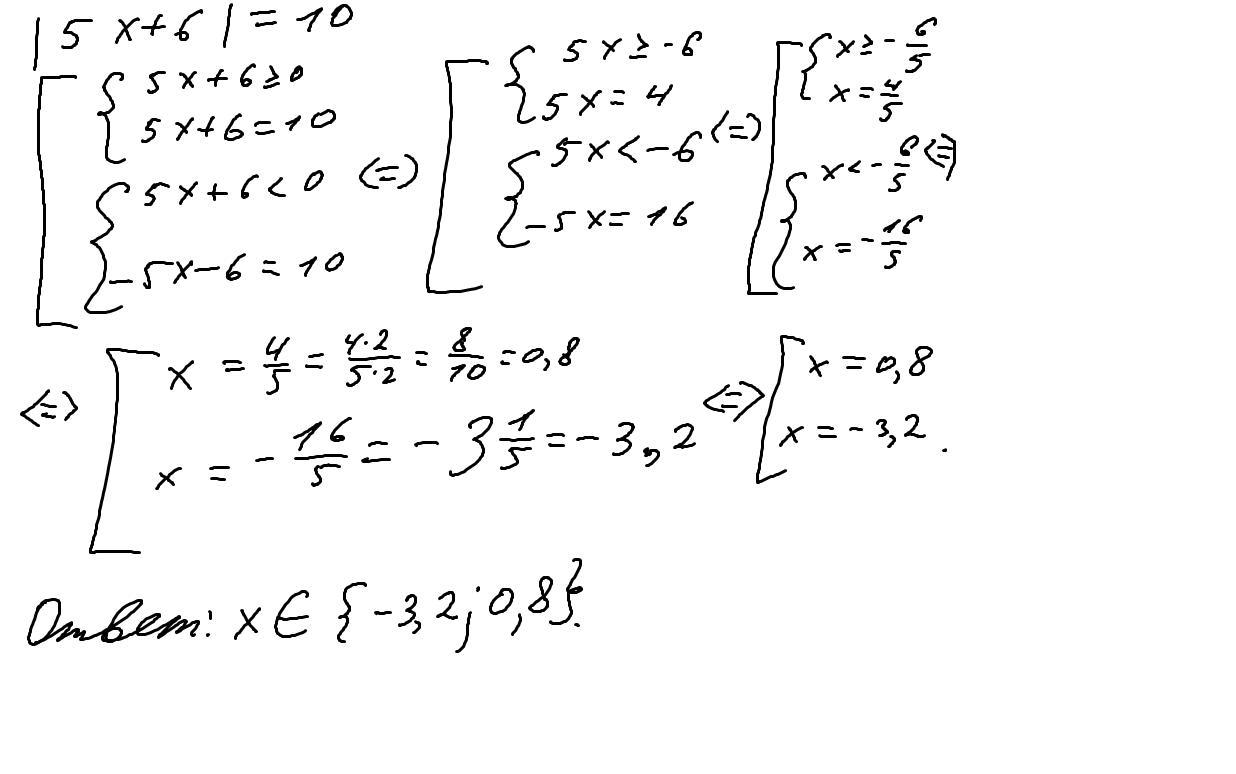 |5x+6|=10
[ { 5x+6≥0 5x+6=10 { 5x+6<0 -5x-6=10 <=> [ { 5x≥-6 5x=4 { 5x<-6 -5x=16 <=> [ { x≥-6/5 x=4/5 { x<-6/5 x=-16/5 <=>
<=> [ x=4/5=4·2/5·2=8/10=0,8 x=-16/5=-3 1/5=-3,2 <=> [ x=0,8 x=-3,2.
Ответ: x∈{-3,2;0,8}.